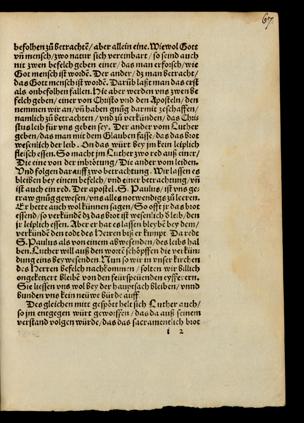 67
befolhen zů betrachtē/ aber allein eine. Wiewol Gott
vň mensch/ zwo natur sich vereinbart/ so seind auch
mit zwen befelch geben einer/ das man erforsch/ wie
Got mensch ist wordē. Der ander/ dz man betracht/
das Got mensch ist wordē. Darūb laßt man das erst
als onbefolhen fallen. Hie aber werden vns zwen be
felch geben/ einer von Christo vnd den Aposteln/ den
nemmen wir an/ vň haben gnůg darmit zeschaffen/
namlich zů betrachten/ vnd zů verkünden/ das Chri
stus leib für vns geben sey. Der ander vom Luther
geben/ das man mit dem Glauben fasse/ das das brot
wesenlich der leib. On das würt bey jm kein leiplich
fleisch essen. So macht jm Luther zwo red auß einer/
Die eine von der inbrotung/ Die ander vom leiden.
Vnd folgen darauff zwo betrachtung. Wir lassen es
bleiben bey einem befelch/ vnd einer betrachtung/ vň
ist auch ein red. Der apostel. S. Paulus/ ist vns ge-
traw gnůg gewesen/ vns alles notwendigs zů leeren.
Er hette auch wol künnen sagen/ So offt jr das brot
essend/ so verkündē dz das brot ist wesenlich d leib/ den
jr leiplich essen. Aber er hat es lassen bleybē bey dem/
verkündē den todt des Herren biß er kumpt. Da redt
S. Paulus als von einem abwesenden/ des leib hal
ben. Luther will auß den wortē schöpffen die verkün
dung eins beywesenden. Nun so wir in vnser kirchen
des Herren befelch nachkommen/ solten wir billich
ongeketzert bleibē von den feürspeienden ysseren.
Sie liessen vns wol bey der hauptsach bleiben/ vnnd
bunden vns kein neüwe bürde auff.
Des gleichen mitt gespött helt sich Luther auch/
so jm entgegen würt geworffen/ das da auß seinem
verstand volgen würde/ das das sacramentlich brot
i 2